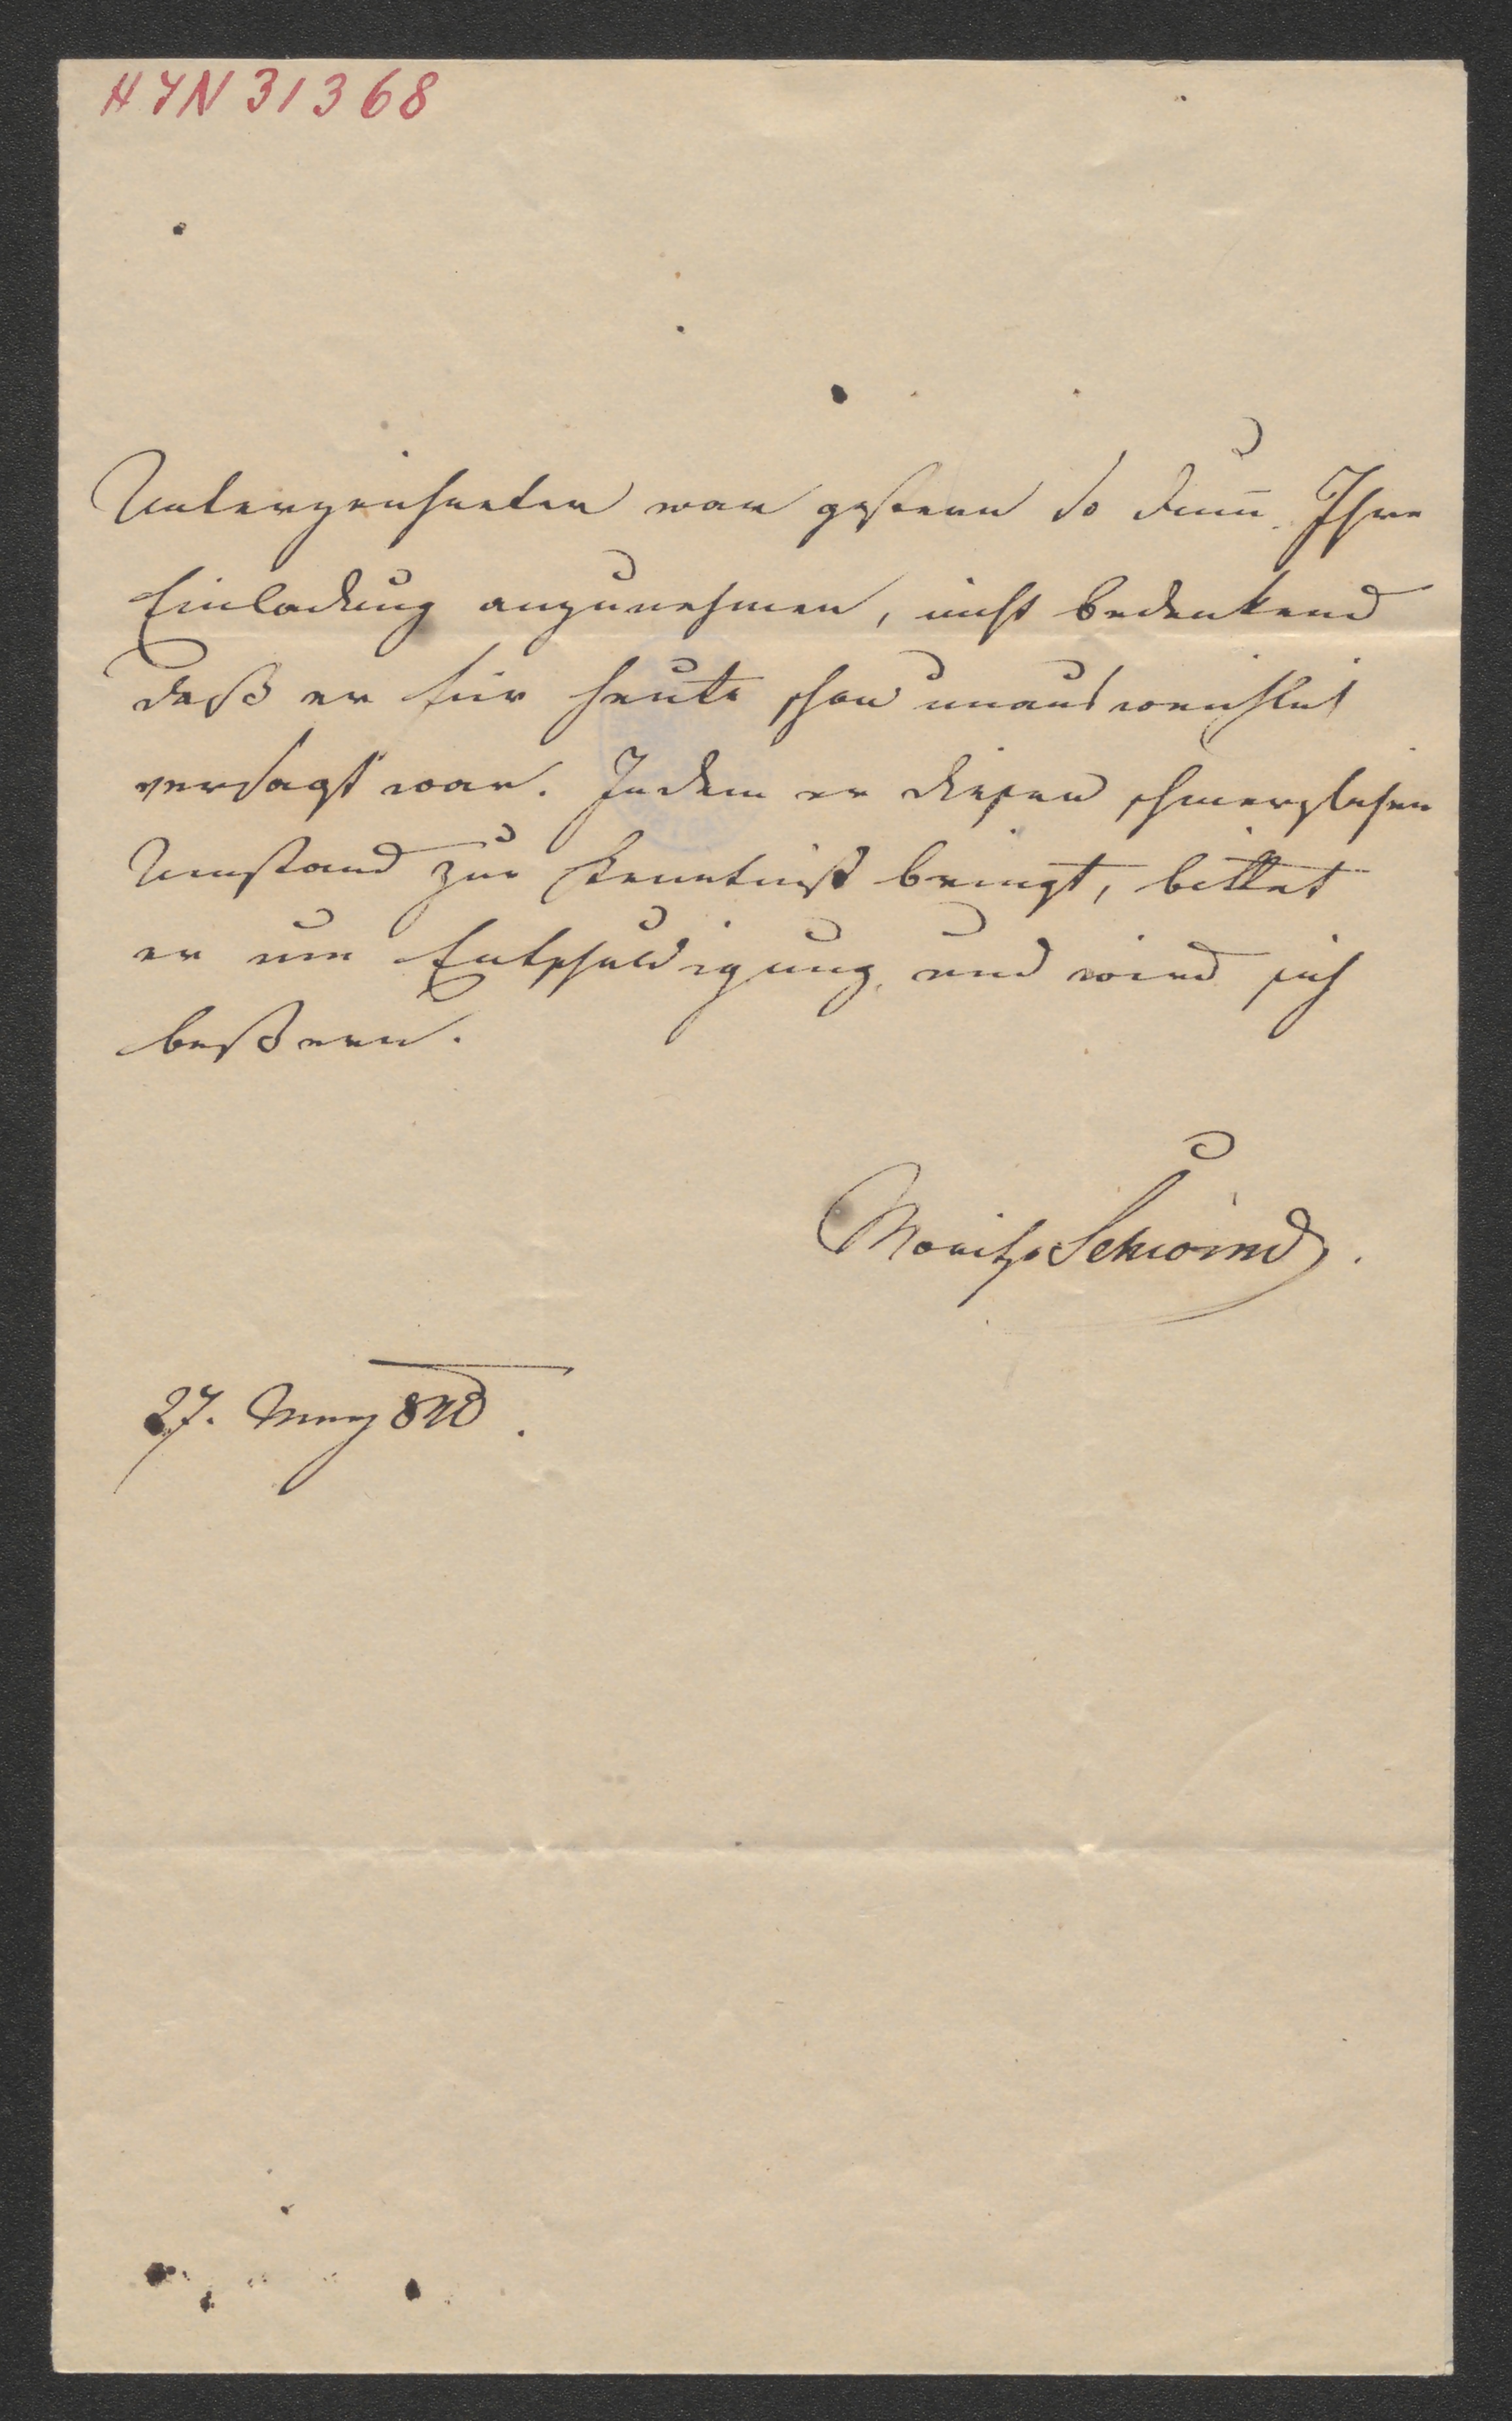 HIN 31368
Unterzeichneter war gestern so dum̄ Ihre
Einladung anzunehmen, nicht bedenkend
daß er für heute schon unausweichlich
versagt war. Indem er diesen schmerzlichen
Umstand zur Kenntniß bringt, bittet
er um Entschuldigung, und wird sich
beßeren.
Moritz Schwind.
27. May